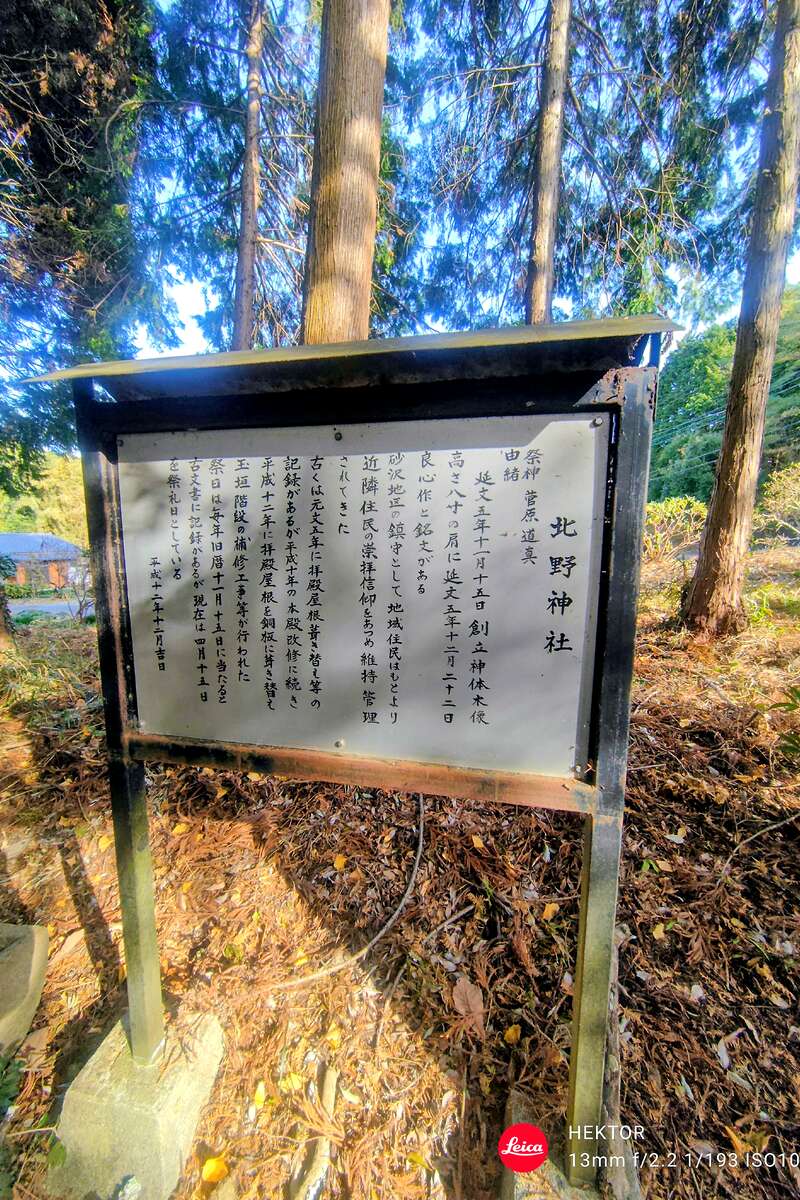 北野神社
祭神 菅原道真
由緒
延文五年十一月十五日 創立神体木像
高さ八寸の肩に延文五年十二月二十二日
良心作と銘文がある
砂沢地区の鎮守として地域住民はもとより
近隣住民の崇拝信仰をあつめ維持管理
されてきた
古くは元文五年に拝殿屋根葺き替え等の
記録があるが平成十年の本殿改修に続き
平成十二年に拝殿屋根を銅板に葺き替え
玉垣階段の補修工事等が行われた
祭日は毎年旧暦十一月十五日に当たると
古文書に記録があるが現在は四月十五日
を祭礼日としている
平成十二年十二月吉日
Leica
HEKTOR
13mm f/2.2 1/193 ISO10